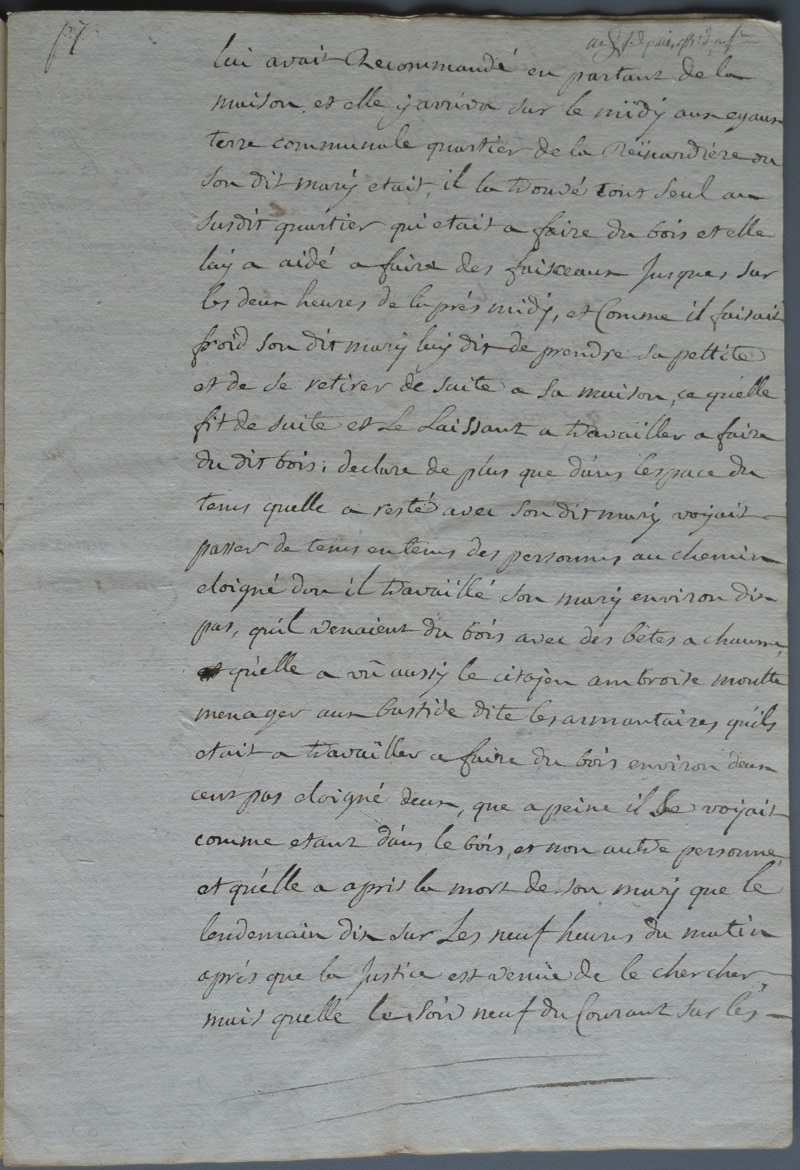 p7
lui avait Recommandé en partant de la
maison, et elle y arriva sur le midÿ aux eyaux
terre communale quartier de la Reinardiére ou
son dit marÿ etait, il la trouvé tout seul au
susdit quartier qui etait a faire du bois et elle
luy a aidé a faire des faisceaux Jusques sur
les deux heures de laprés midÿ, et Comme il faisait
froid son dit marÿ luÿ dit de prendre sa pettite
et de se retirer de suite a sa maison, ce quélle
fit de suite et Le Laissant a travailler a faire
du dit bois; declare de plus que dans lespace du
tems quelle a resté avec son dit marÿ voÿait
passer de tems en tems des personnes au chemin
eloigné dou il travaillé son marÿ environ dix
pas, quil venaient du bois avec des bêtes a chaume,
quélle a vû aussÿ le citoÿen ambroise moutte
menager aux bastide dite les armantaires quils
etait a travailler a faire du bois environ deux
cent pas eloigné deux, que apeine il Le voÿait
comme etant dans le bois, et non autre personne,
et quélle a apris la mort de son marÿ que le
lendemain dix sur Les neuf heures du matin
aprés que la Justice est venüe de le chercher,
mais quelle le Soir neuf du Courant sur les